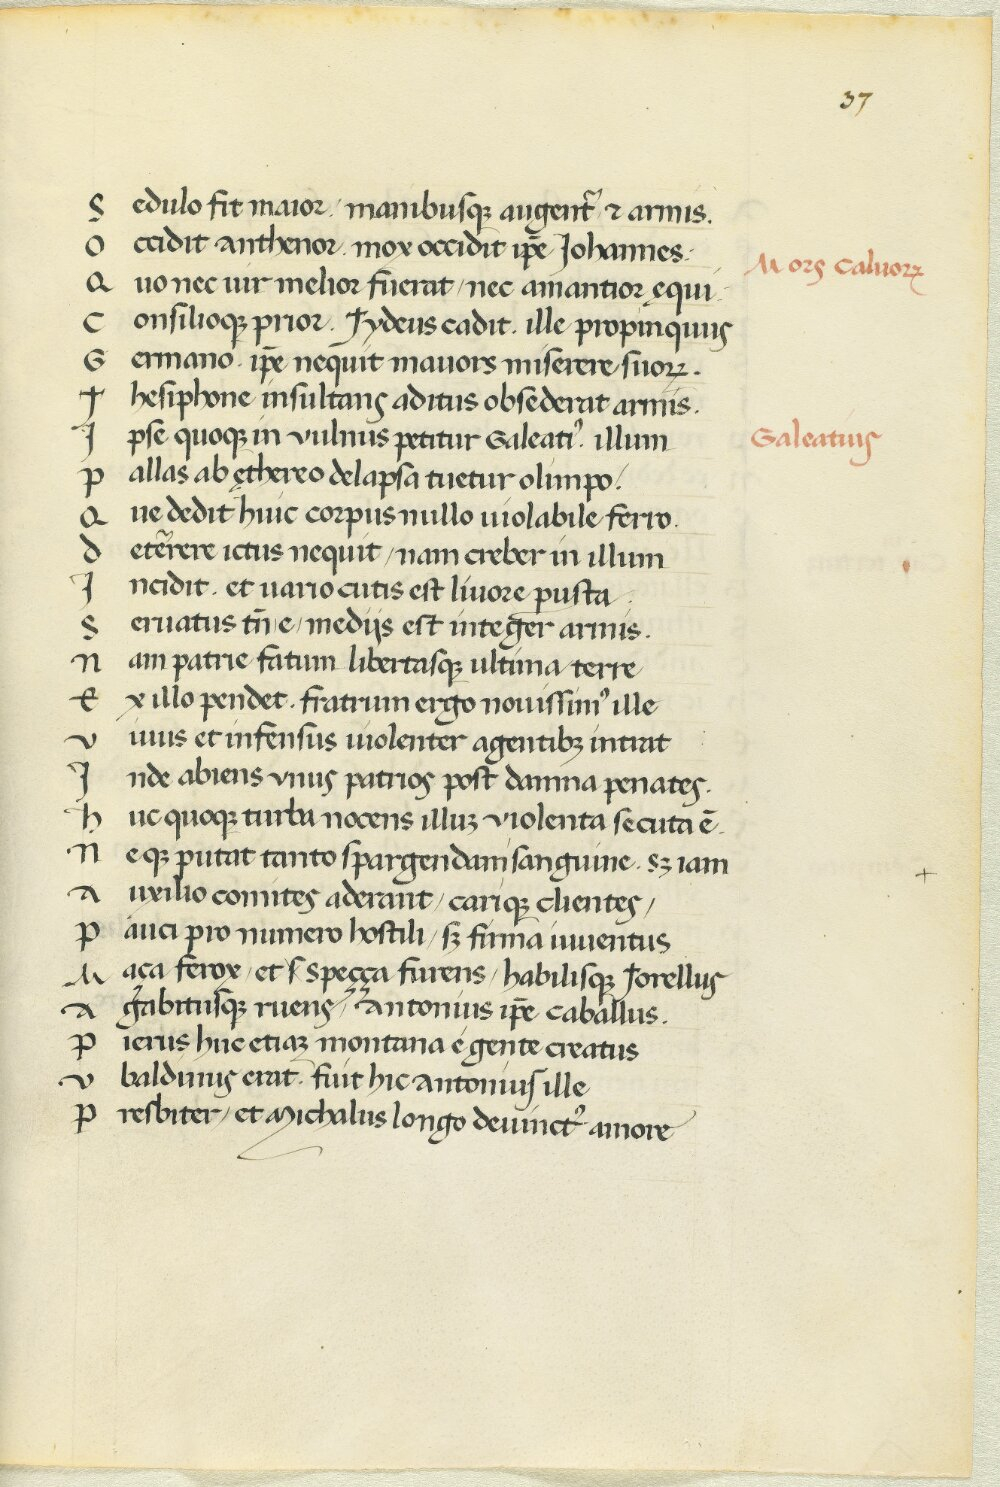 37
S edulo fit maior / manibusqꝫ augent᷑ ⁊ armis.
O ccidit anthenor. mox occidit ip̄e Johannes.
Mors Caluorꝝ
Q uo nec uir melior fuerat / nec amantior ęqui
C onsilioqꝫ prior. Tydeus cadit. ille propinquus
G ermano. ip̄e nequit mauors miserere suorꝝ.
T hesiphone insultans aditus obsederat armis.
J pse quoqꝫ in vulnus petitur Galeatiꝰ. illum
Galeatius
P allas ab ęthereo delapsa tuetur olimpo /
Q ue dedit huic corpus nullo uiolabile ferro.
D eterrere ictus nequit / nam creber in illum
J ncidit. et uario cutis est liuore pusta
S eruatus tn̄ e / medijs est integer armis.
N am patrie fatum libertasqꝫ ultima terre
E x illo pendet. fratrum ergo nouissimꝰ ille
V iuus et infensus uiolenter agentibꝫ intrat
J nde abiens vnus patrios post damna penates.
H uc quoqꝫ turba nocens illuꝫ violenta secuta ē.
N eqꝫ putat tanto spargendam sanguine. sꝫ iam
A uxilio comites aderant / cariqꝫ clientes /
P auci pro numero hostili / sꝫ firma iuuentus
M aça ferox / et Speçça furens / habilisqꝫ Torellus
A grabitusqꝫ ruens / Antonius ip̄e Caballus.
P ierus huc etiaꝫ montana e gente creatus
V baldinus erat. fuit hic Antonius ille
P resbiter / et Michalus longo deuinctꝰ amore